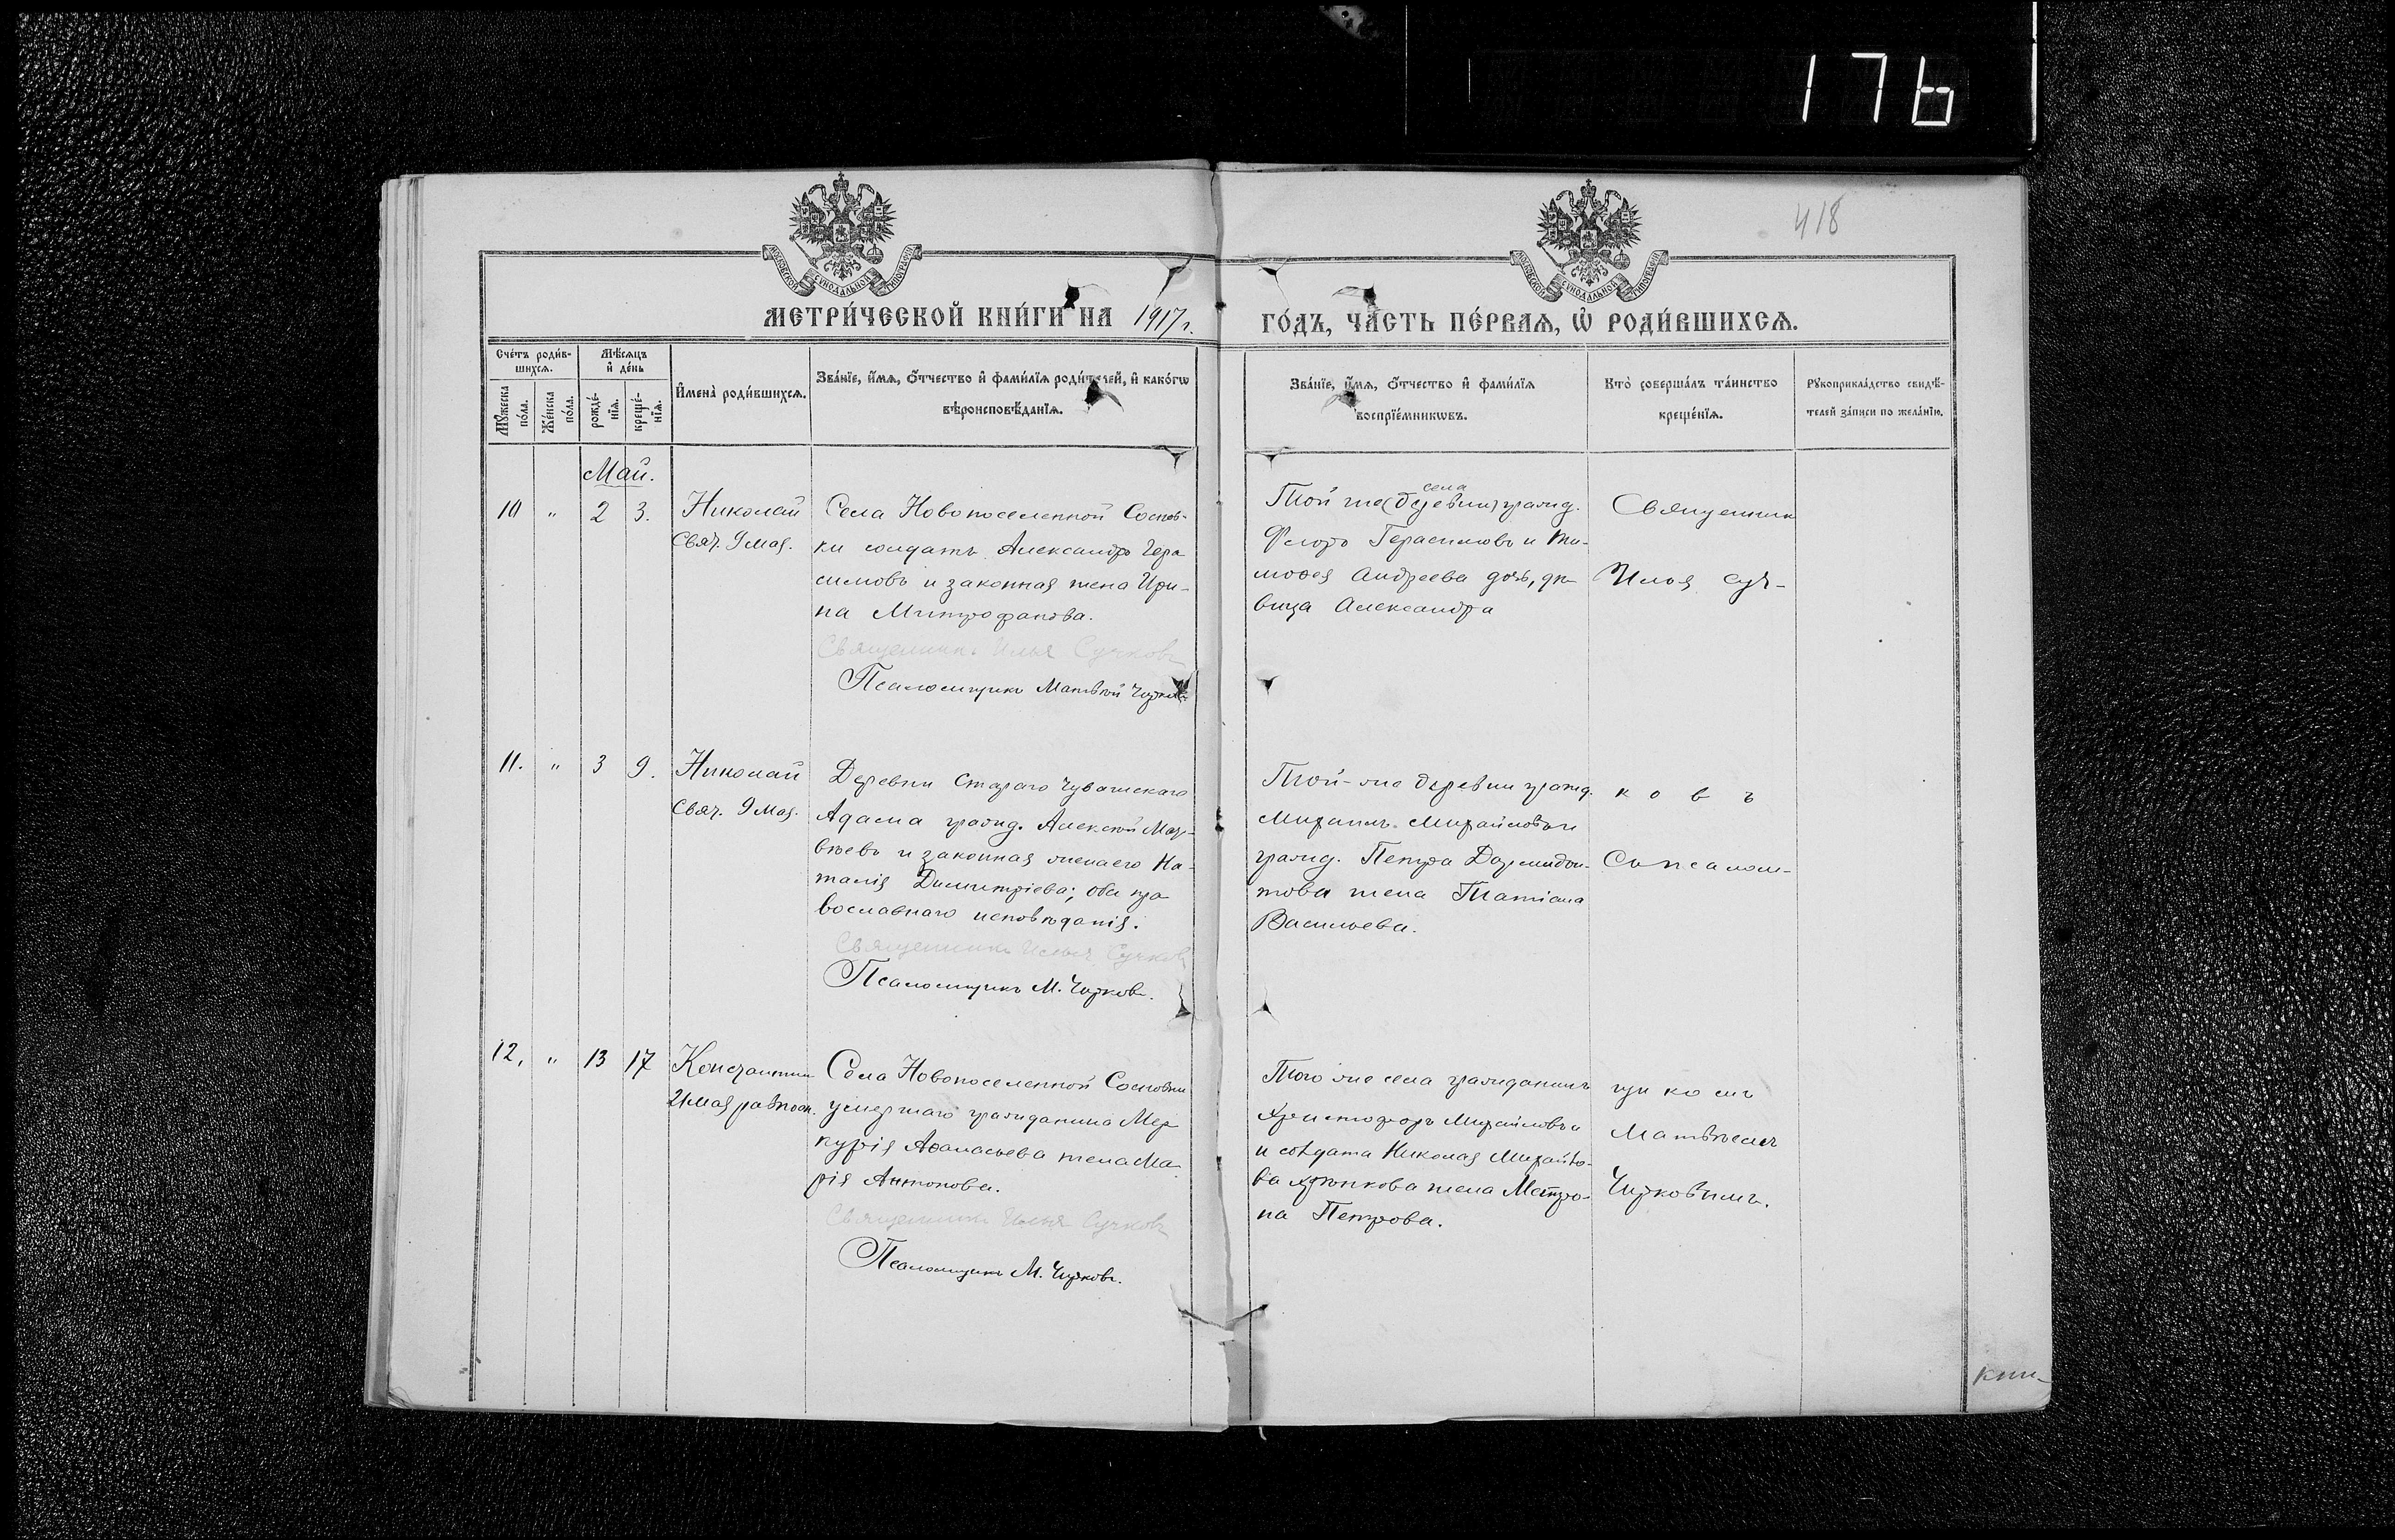 176
418
МОСКОВСКОЙ СУНОДАЛЬНОЙ ТИПОГРАФІИ
МОСКОВСКОЙ СУНОДАЛЬНОЙ ТИПОГРАФІИ
МЕТРИ́ЧЕСКОЙ КНИ́ГИ НА 1917 г.
ГО́ДЪ, ЧА́СТЬ ПЕ́РВАѦ, Ѡ҆ РОДИ́ВШИХСѦ.
Сче́тъ роди́в-
шихсѧ.
Мѣ́сѧцъ
и҆ де́нь
Мꙋ́жеска
по́ла.
Же́нска
по́ла.
рожде́-
нїѧ.
креще́-
нїѧ.
И҆мена̀ роди́вшихсѧ.
Зва́нїе, и҆́мѧ, ѻ҆́тчество и҆ фами́лїѧ роди́телей, и҆ како́гѡ
вѣроисповѣ́данїѧ.
Зва́нїе, и҆́мѧ, ѻ҆́тчество и҆ фами́лїѧ
воспрїе́мникѡвъ.
Кто̀ соверша́лъ та́инство
креще́нїѧ.
Рꙋкоприкла́дство свидѣ́-
телей за́писи по жела́нїю.
Май.
10 " 2 3.
Николай
Свят. 9 мая.
Села Новопоселенной Соснов-
ки солдатъ Александръ Гера
симовъ и законная жена Ири-
на Митрофанова.
Священникъ Илья Сучковъ
Псаломщикъ Матвѣй Чирковъ
села
Той же (деревни) гражд.
Флоръ Герасимовъ и Ти-
мофея Андреева дочь, дѣ-
вица Александра
Священник
Илья Суч-
11. " 3 9.
Николай
Свят. 9 мая.
Деревни Стараго Чувашскаго
Адама гражд. Алексѣй Мат-
вѣевъ и законная жена его На-
талія Димитріева; оба пра
вославнаго исповѣданія.
Священникъ Илья Сучковъ
Псаломщикъ М. Чирковъ.
Той-же деревни гражд.
Михаилъ Михайловъ и
гражд. Петра Дормидон-
това жена Татіана
Васильева.
к о в ъ
Съ псалом-
12. " 13 17
Константин
21 мая равноап.
Села Новопоселенной Сосновки
умершаго гражданина Мер
курія Аѳанасьева жена Ма-
рія Антонова.
Священникъ Илья Сучковъ
Псаломщикъ М. Чирковъ.
Того же села гражданинъ
Христофоръ Михайловъ и
и солдата Николая Михайло-
ва жена Матро-
на Петрова.
щи ко мъ
Матвѣемъ
Чирковымъ.
кни-